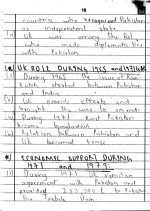 18
countries who recognized Pakistan
as independent state.
(ii) UK was among the
who made diplomatic ties
with Pakistan.
(*) UK ROLE DURING 1965 and 1971 WAR
(i) During 1965 the issue of Rann
Kutch started between Pakistan
and India
(ii) UK provides efforts and
brought the war to an end.
(iii) During 1971 East Pakistan
became Bangladesh
(iv) Relations between Pakistan and
UK became tense
(*) ECONOMIC SUPPORT DURING
and 1973:
(i) During 1971 UK signed an
agreement with Pakistan and
provided 253,000 £ to Pakistan
for Dam